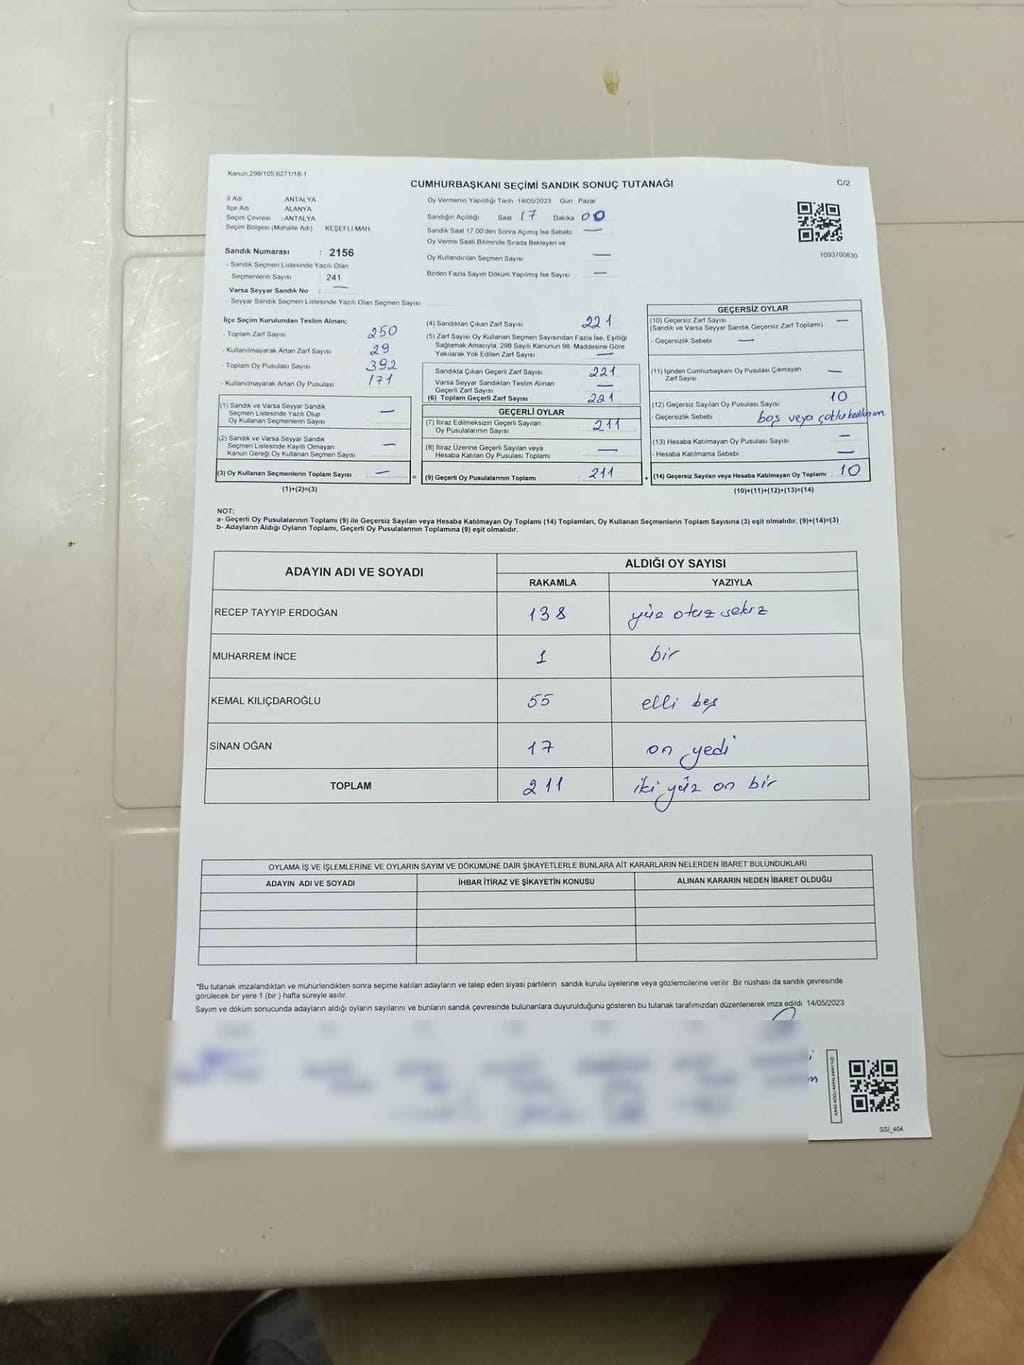 Kanun.298/105.6271/18-1
CUMHURBAŞKANI SEÇİMİ SANDIK SONUÇ TUTANAĞI
C/2
İl Adı : ANTALYA
İlçe Adı : ALANYA
Seçim Çevresi : ANTALYA
Seçim Bölgesi (Mahalle Adı) KEŞEFLİ MAH
Sandık Numarası : 2156
- Sandık Seçmen Listesinde Yazılı Olan
Seçmenlerin Sayısı : 241
Varsa Seyyar Sandık No : —
- Seyyar Sandık Seçmen Listesinde Yazılı Olan Seçmen Sayısı
Oy Vermenin Yapıldığı Tarih 14/05/2023 Gün : Pazar
Sandığın Açıldığı Saat 17 Dakika 00
Sandık Saat 17.00'den Sonra Açılmış İse Sebebi —
Oy Verme Saati Bitiminde Sırada Bekleyen ve
Oy Kullandırılan Seçmen Sayısı —
Birden Fazla Sayım Döküm Yapılmış İse Sayısı —
1093700830
İlçe Seçim Kurulundan Teslim Alınan;
- Toplam Zarf Sayısı : 250
- Kullanılmayarak Artan Zarf Sayısı : 29
- Toplam Oy Pusulası Sayısı : 392
- Kullanılmayarak Artan Oy Pusulası : 171
(1) Sandık ve Varsa Seyyar Sandık
Seçmen Listesinde Yazılı Olup
Oy Kullanan Seçmenlerin Sayısı —
(2) Sandık ve Varsa Seyyar Sandık
Seçmen Listesinde Kayıtlı Olmayan
Kanun Gereği Oy Kullanan Seçmen Sayısı —
(3) Oy Kullanan Seçmenlerin Toplam Sayısı —
(1)+(2)=(3)
(4) Sandıktan Çıkan Zarf Sayısı : 221
(5) Zarf Sayısı Oy Kullanan Seçmen Sayısından Fazla İse, Eşitliği
Sağlamak Amacıyla, 298 Sayılı Kanunun 98. Maddesine Göre
Yakılarak Yok Edilen Zarf Sayısı —
Sandıkta Çıkan Geçerli Zarf Sayısı : 221
Varsa Seyyar Sandıktan Teslim Alınan
Geçerli Zarf Sayısı —
(6) Toplam Geçerli Zarf Sayısı : 221
GEÇERLİ OYLAR
(7) İtiraz Edilmeksizin Geçerli Sayılan
Oy Pusulalarının Sayısı : 211
(8) İtiraz Üzerine Geçerli Sayılan veya
Hesaba Katılan Oy Pusulası Toplamı —
= (9) Geçerli Oy Pusulalarının Toplamı : 211
GEÇERSİZ OYLAR
(10) Geçersiz Zarf Sayısı —
(Sandık ve Varsa Seyyar Sandık Geçersiz Zarf Toplamı)
- Geçersizlik Sebebi : —
(11) İçinden Cumhurbaşkanı Oy Pusulası Çıkmayan
Zarf Sayısı —
(12) Geçersiz Sayılan Oy Pusulası Sayısı 10
- Geçersizlik Sebebi : boş veya
(13) Hesaba Katılmayan Oy Pusulası Sayısı —
- Hesaba Katılmama Sebebi —
+ (14) Geçersiz Sayılan veya Hesaba Katılmayan Oy Toplamı : 10
(10)+(11)+(12)+(13)=(14)
NOT:
a- Geçerli Oy Pusulalarının Toplamı (9) ile Geçersiz Sayılan veya Hesaba Katılmayan Oy Toplamı (14) Toplamları, Oy Kullanan Seçmenlerin Toplam Sayısına (3) eşit olmalıdır. (9)+(14)=(3)
b- Adayların Aldığı Oyların Toplamı, Geçerli Oy Pusulalarının Toplamına (9) eşit olmalıdır.
ADAYIN ADI VE SOYADI
ALDIĞI OY SAYISI
RAKAMLA YAZIYLA
RECEP TAYYİP ERDOĞAN 138 yüz otuz sekiz
MUHARREM İNCE 1 bir
KEMAL KILIÇDAROĞLU 55 elli beş
SİNAN OĞAN 17 on yedi
TOPLAM 211 iki yüz on bir
OYLAMA İŞ VE İŞLEMLERİNE VE OYLARIN SAYIM VE DÖKÜMÜNE DAİR ŞİKAYETLERLE BUNLARA AİT KARARLARIN NELERDEN İBARET BULUNDUKLARI
ADAYIN ADI VE SOYADI İHBAR İTİRAZ VE ŞİKAYETİN KONUSU ALINAN KARARIN NEDEN İBARET OLDUĞU
*Bu tutanak imzalandıktan ve mühürlendikten sonra seçime katılan adayların ve talep eden siyasi partilerin sandık kurulu üyelerine veya gözlemcilerine verilir. Bir nüshası da sandık çevresinde
görülecek bir yere 1 (bir ) hafta süreyle asılır.
Sayım ve döküm sonucunda adayların aldığı oyların sayılarını ve bunların sandık çevresinde bulunanlara duyurulduğunu gösteren bu tutanak tarafımızdan düzenlenerek imza edildi. 14/05/2023
SSI_404